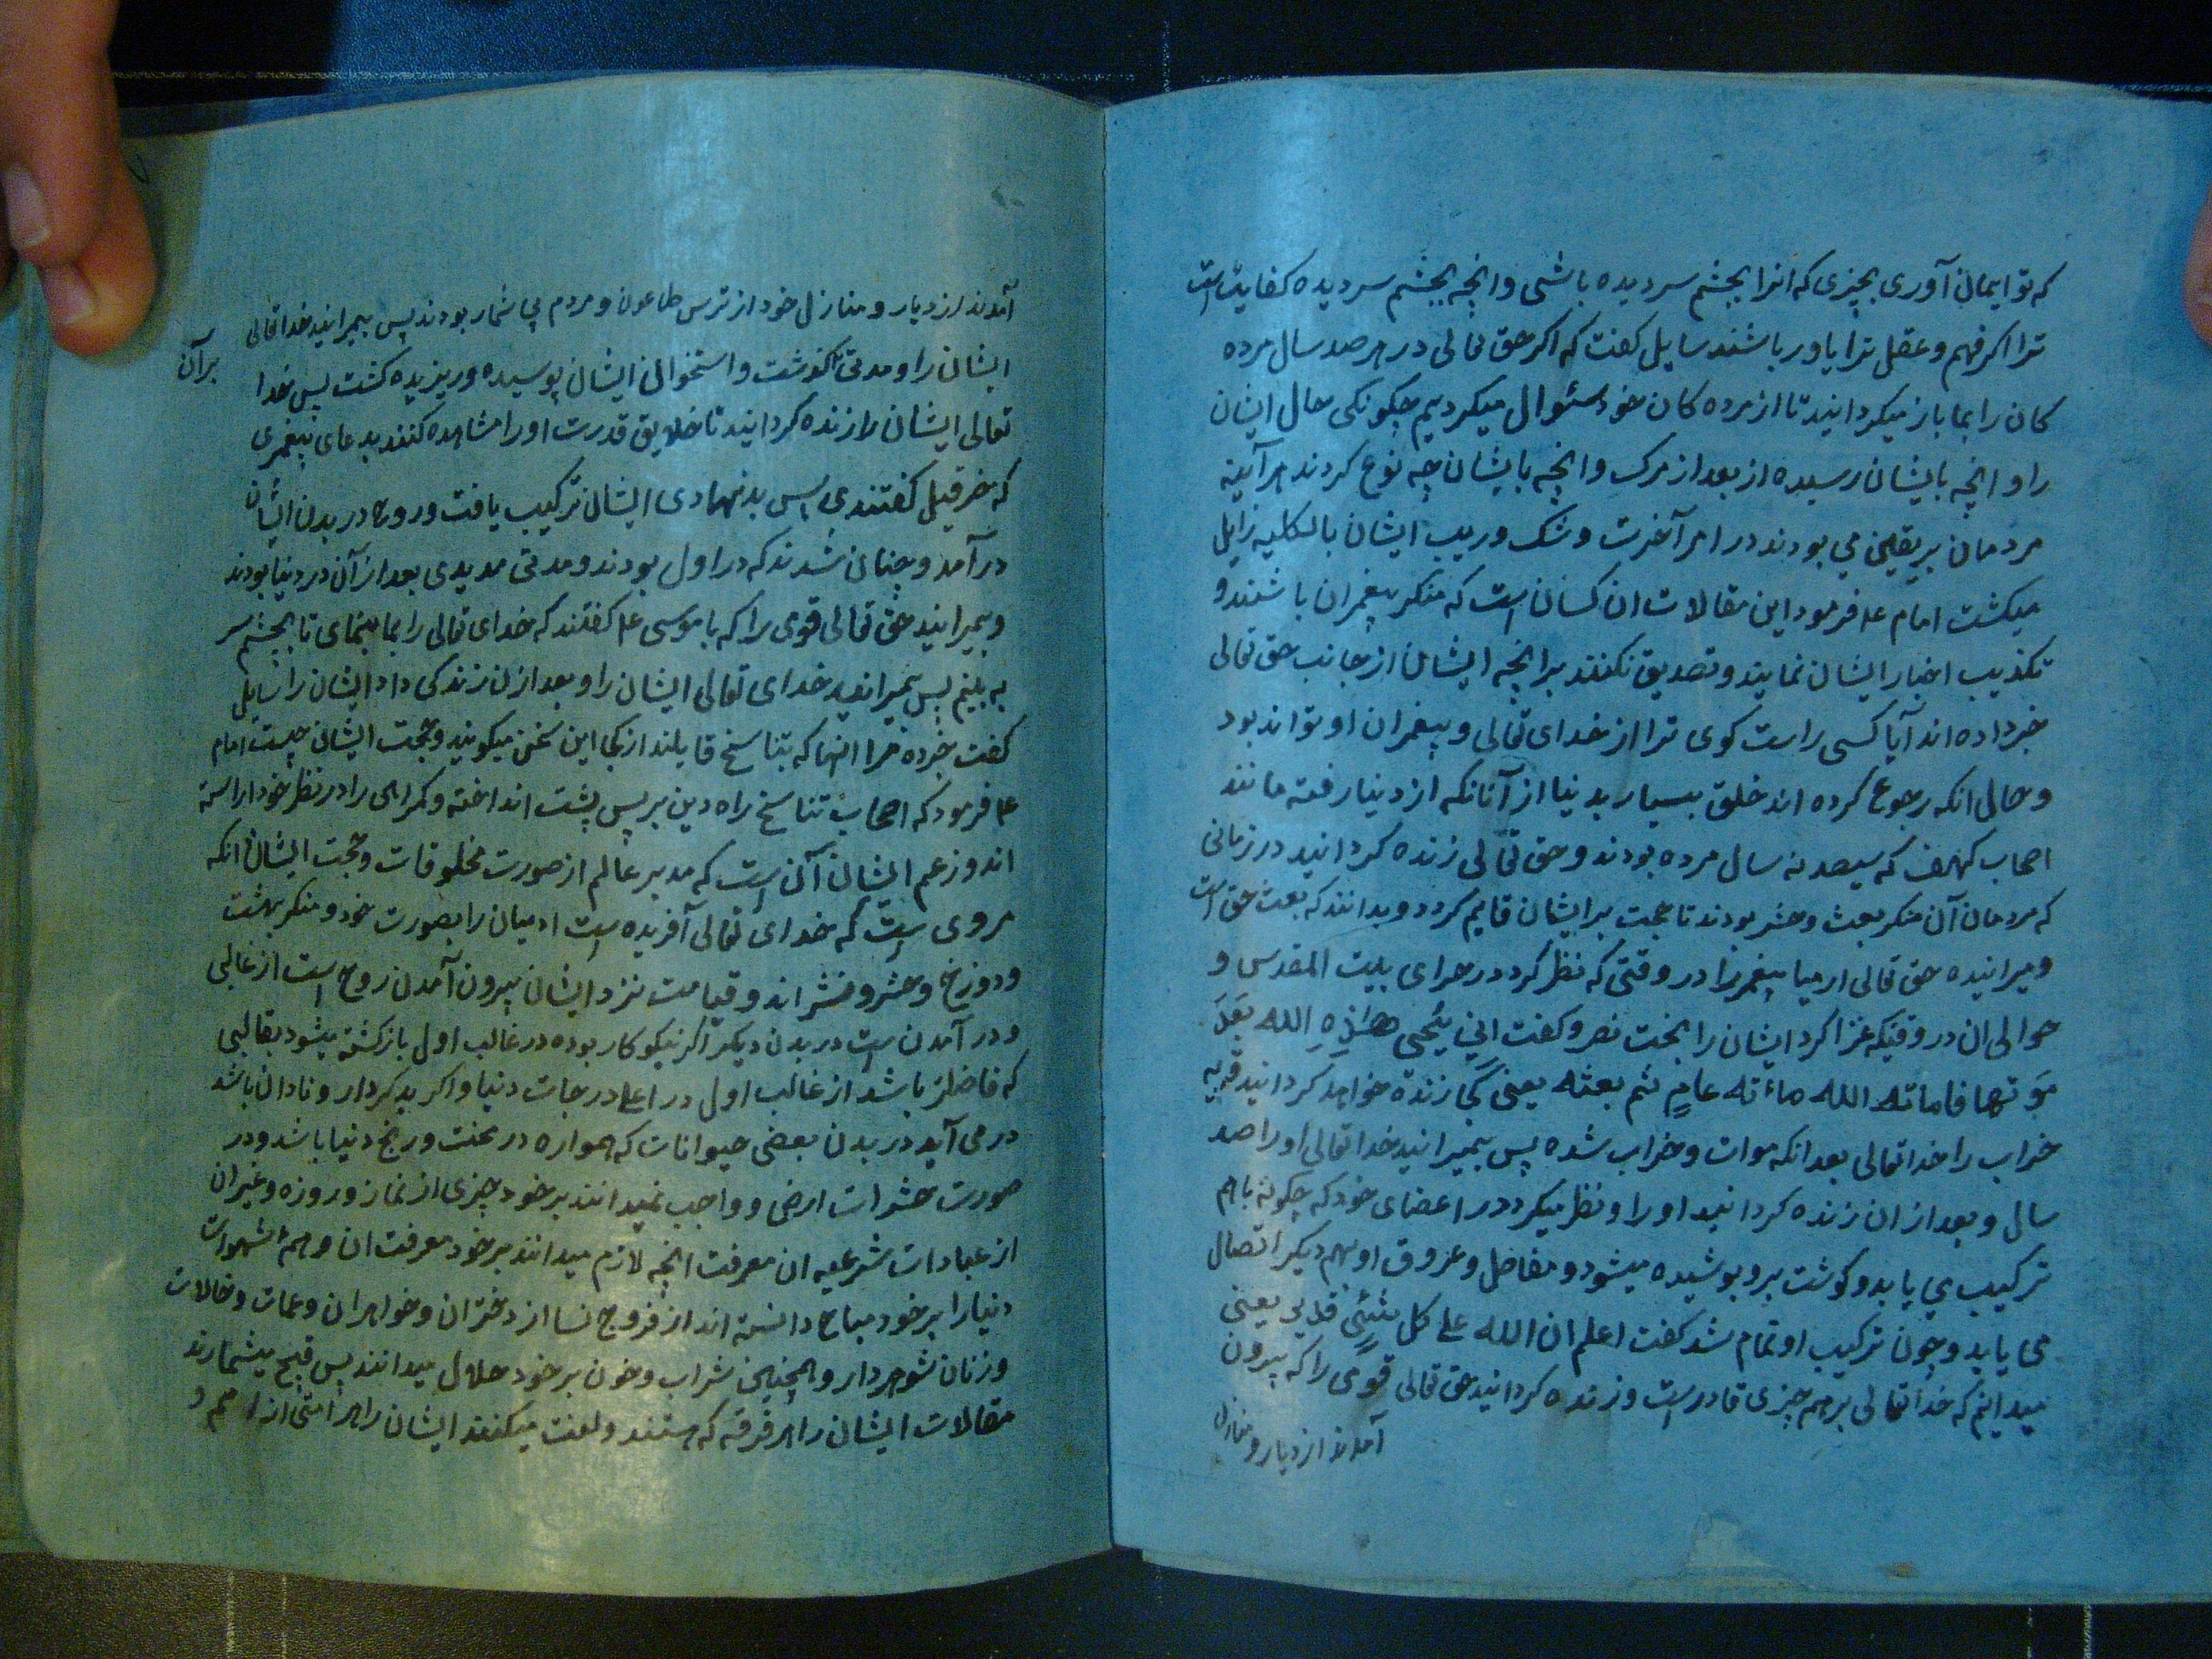 که تو ایمان آوری بچیزی که انرا بچشم سر دیده باشی وانچه بچشم سر دیده کفایت است
ترا اکر فهم و عقل ترا یاور باشند سایل کفت که اکر حق تعالی در هر صد سال مرده
کان را بما باز میکردانید تا از مرده کان خود سئوال میکردیم چکونکی حال ایشان
را و انچه بایشان رسیده از بعد از مرک وانچه بایشان چه نوع کردند هر آینه
مردمان بریقین می بودند در امر آخرت و شک و ریب ایشان بالکلیه زایل
میکشت امام ع فرمود این مقالات ان کسان است که منکر پیغمبران باشند و
تکذیب اخبار ایشان نمایند و تصدیق نکنند برانچه ایشان از جانب حق تعالی
خبر داده اند آیا کسی راست کوی ترا از خدای تعالی و پیغمبران او تواند بود
و حال انکه رجوع کرده اند خلق بسیار بدنیا از آنانکه از دنیا رفته مانند
اصحاب کهف که سیصد نه سال مرده بودند و حق تعالی زنده کردانید در زمانی
که مردمان آن منکر بعث و حشر بودند تا حجت بر ایشان قایم کردد و بدانند که بعث حق است
و میرانیده حق تعالی ارمیا پیغمبر را در وقتی که نظر کرد در حرای بیت المقدس و
حوالی ان در وقتیکه غزا کرد ایشان را بخت نصر و کفت انی یُحیی هٰذِهِ الله بَعدَ
مَوتها فاماته الله ماءئه عامٍ ثم بعثه یعنی کی زنده خواهد کردانید قریه
خراب را خداتعالی بعد انکه موات و خراب شده پس بمیرانید خداتعالی اورا صد
سال و بعد از ان زنده کردانید اورا و نظر میکرد در اعضای خود که چکونه باهم
ترکیب می یابد و کوشت بر و پوشیده میشود و مفاصل و عروق او بهم دیکر اتصال
می یابد و چون ترکیب او تمام شد کفت اعلم ان الله علی کل شئیٍ قدیر یعنی
میدانم که خداتعالی بر همه چیزی قادر است و زنده کردانید حق تعالی قومی را که بیرون
آمدند از دیار و منازل
آمدند از دیار و منازل خود از ترس طاعون و مردم بی شمار بودند پس بمیرانید خداتعالی
ایشان را و مدتی بر آن کذشت و استخوان ایشان پوسیده و ریزیده کشت پس خدا
تعالی ایشان را زنده کردانید تا خلایق قدرت اورا مشاهده کنند بدعای پیغمبری
که خرقیل کفتندی پس بدنهادی ایشان ترکیب یافت و روح در بدن ایشان
در آمد و چنان شدند که در اول بودند و مدتی مدیدی بعد از آن در دنیا بودند
و بمیرانید حق تعالی قومی را که با موسی ع کفتند که خدای تعالی را بما بنمای تا بچشم سر
به بینم پس بمیرانید خدای تعالی ایشان را و بعد ازن زندکی داد ایشان را سایل
کفت خبر ده مرا انها که بتناسخ قایلند از کجا این سخن میکویند و حجت ایشان چیست امام
ع فرمود که اصحاب تناسخ راه دین بر پس پشت انداخته و کمراهی را در نظر خود اراسته
اند و زعم ایشان آن است که مدبر عالم از صورت مخلوقات و حجت ایشان انکه
مروی است که خدای تعالی آفریده است ادمیان را بصورت خود و منکر بهشت
و دوزخ و حشر و نشر اند و قیامت نزد ایشان بیرون آمدن روح است از غالبی
و در آمدن است در بدن دیکر اکر نیکو کار بوده در غالب اول بازکشته میشود بقالبی
که فاضلتر باشد از غالب اول در اعلا درجات دنیا و اکر بد کردار و نادان باشد
در می آید در بدن بعضی حیوانات که همواره در محنت و رنج دنیا باشد و در
صورت حشرات ارضی و واجب نمیدانند بر خود چیزی از نماز و روزه و غیران
از عبادات شرعیه ان معرفت انچه لازم میدانند بر خود معرفت ان و همه شهوات
دنیا را بر خود مباح دانسته اند از فروج نسا از دختران و خواهران و عمات و خالات
و زنان شوهردار و همچنین شراب و خون بر خود حلال میدانند پس قبح میشمارند
مقالات ایشان را هر فرقه که هستند و لعنت میکنند ایشان را هر امتی از امم و